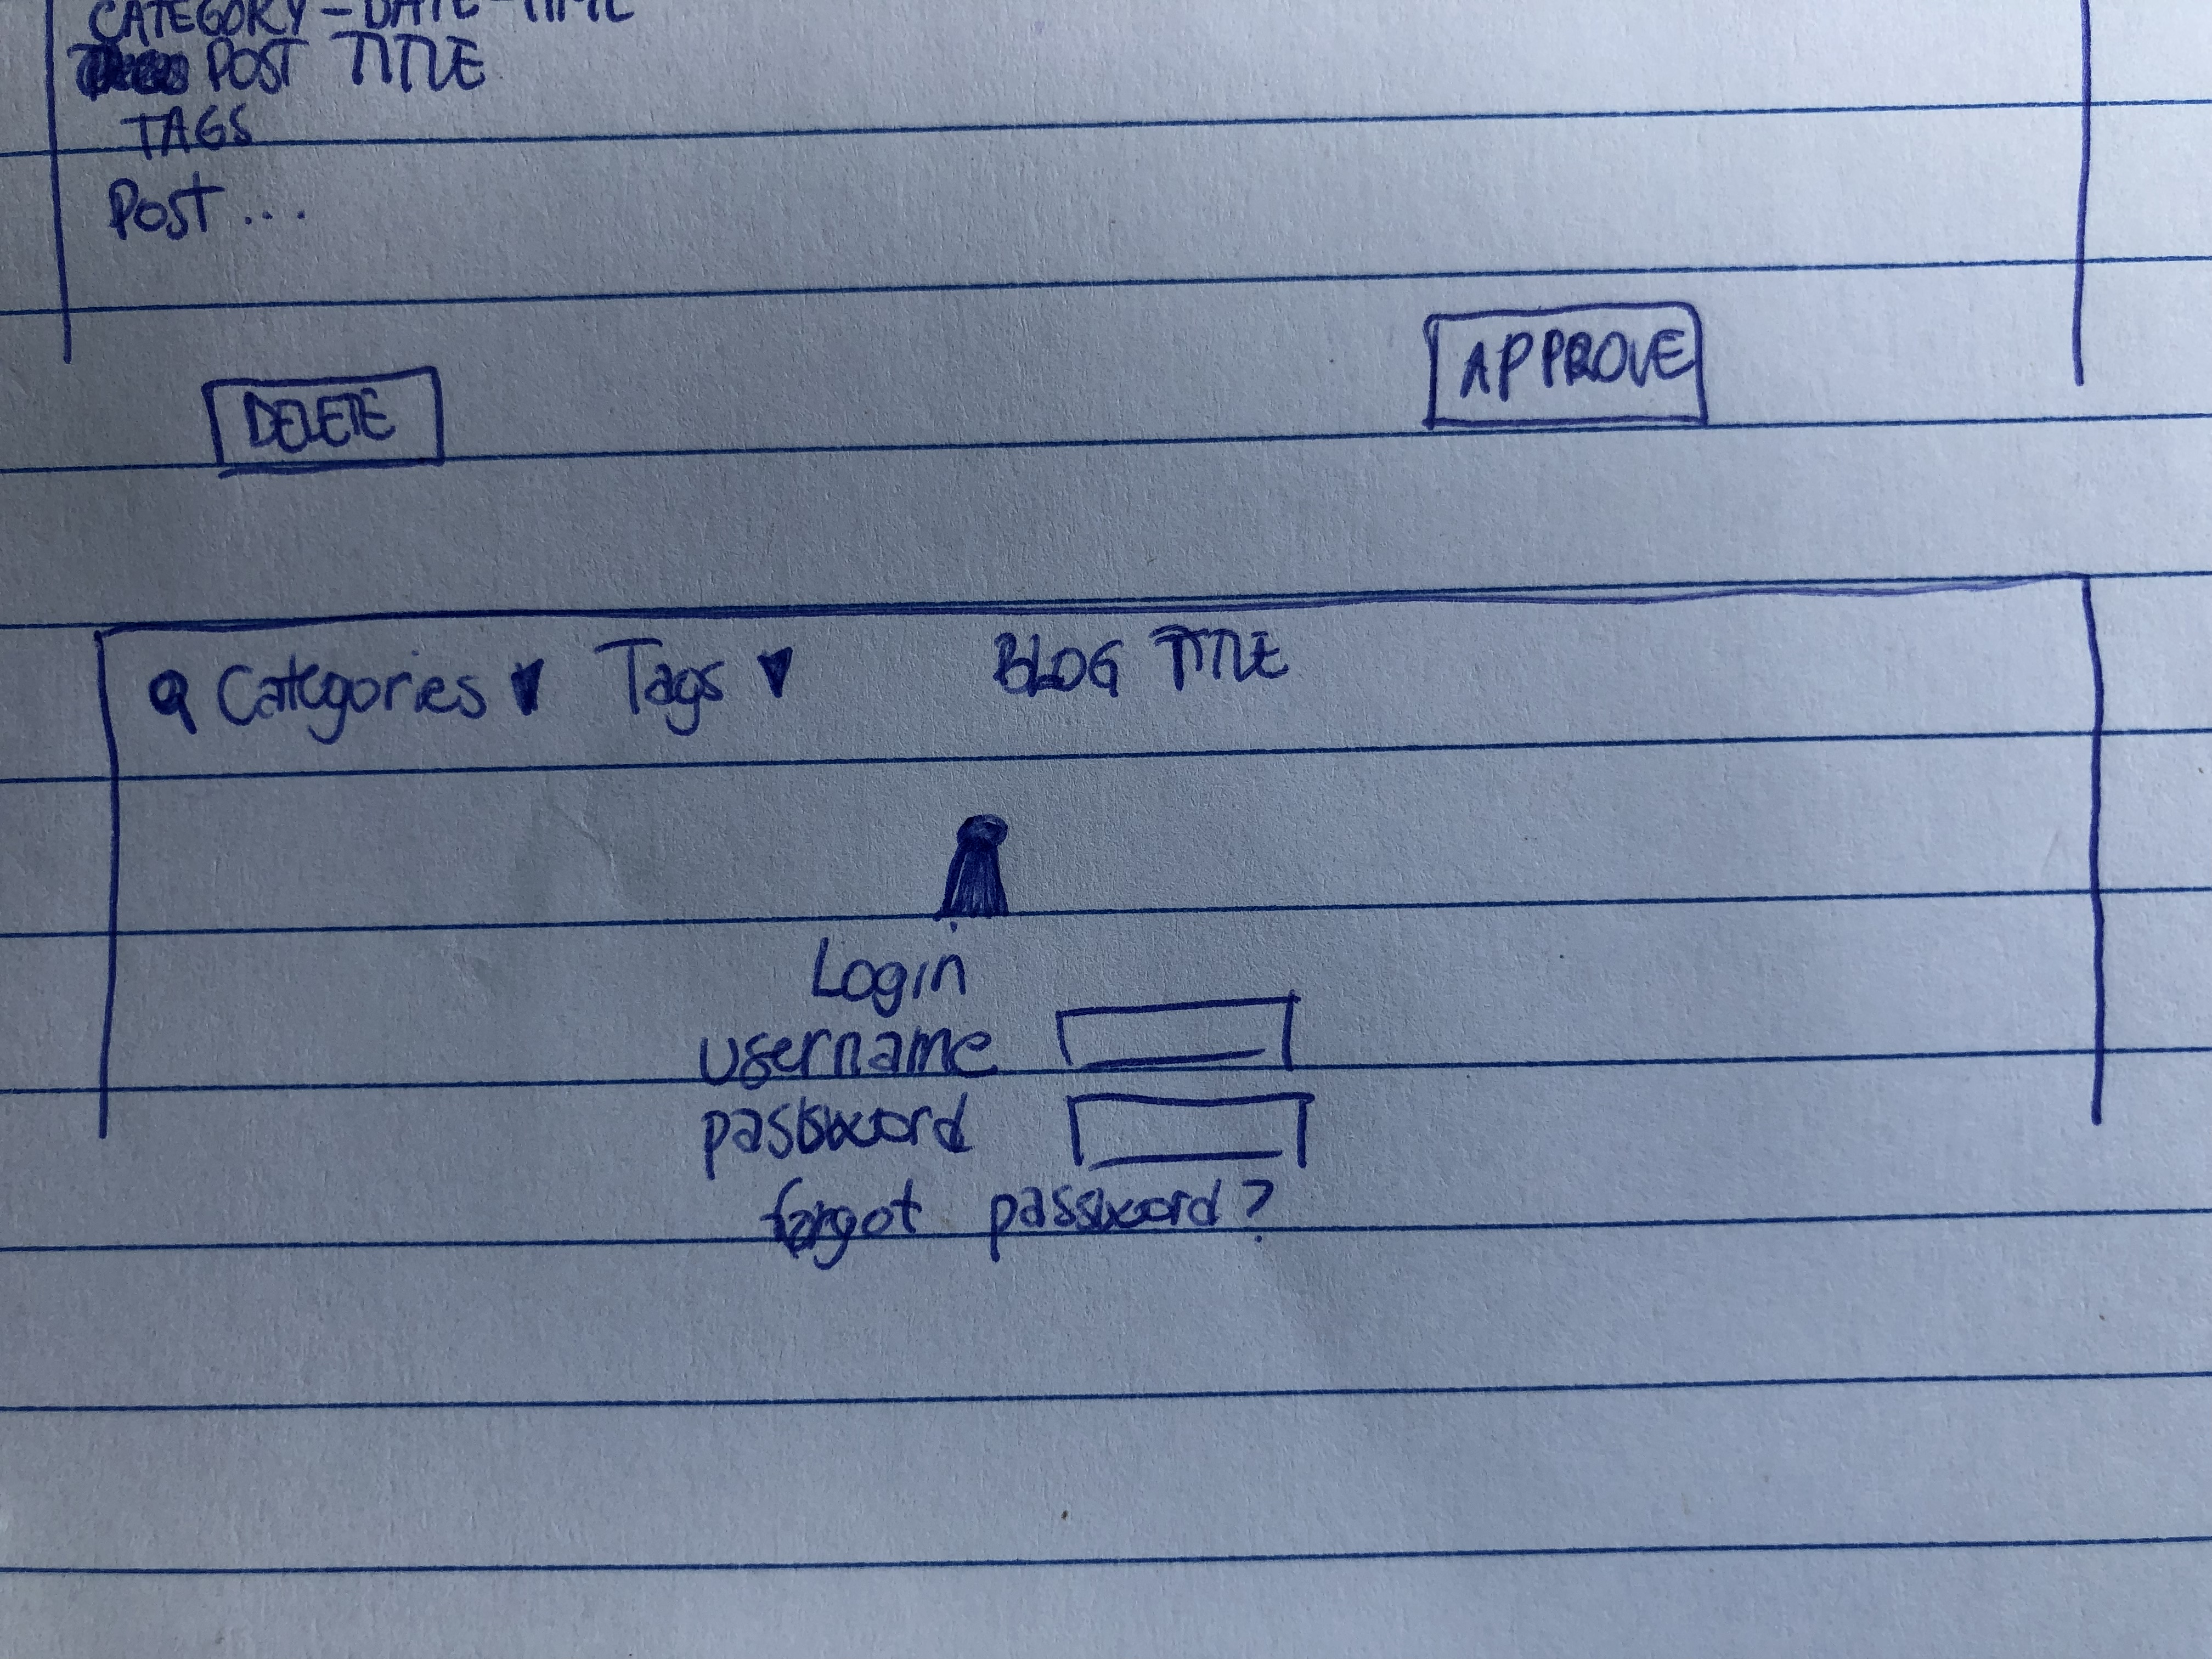 CATEGORY - DATE - TIME
POST TITLE
TAGS
Post ...
APPROVE
DELETE
Categories ▼ Tags ▼ BLOG TITLE
Login
username
password
forgot password?